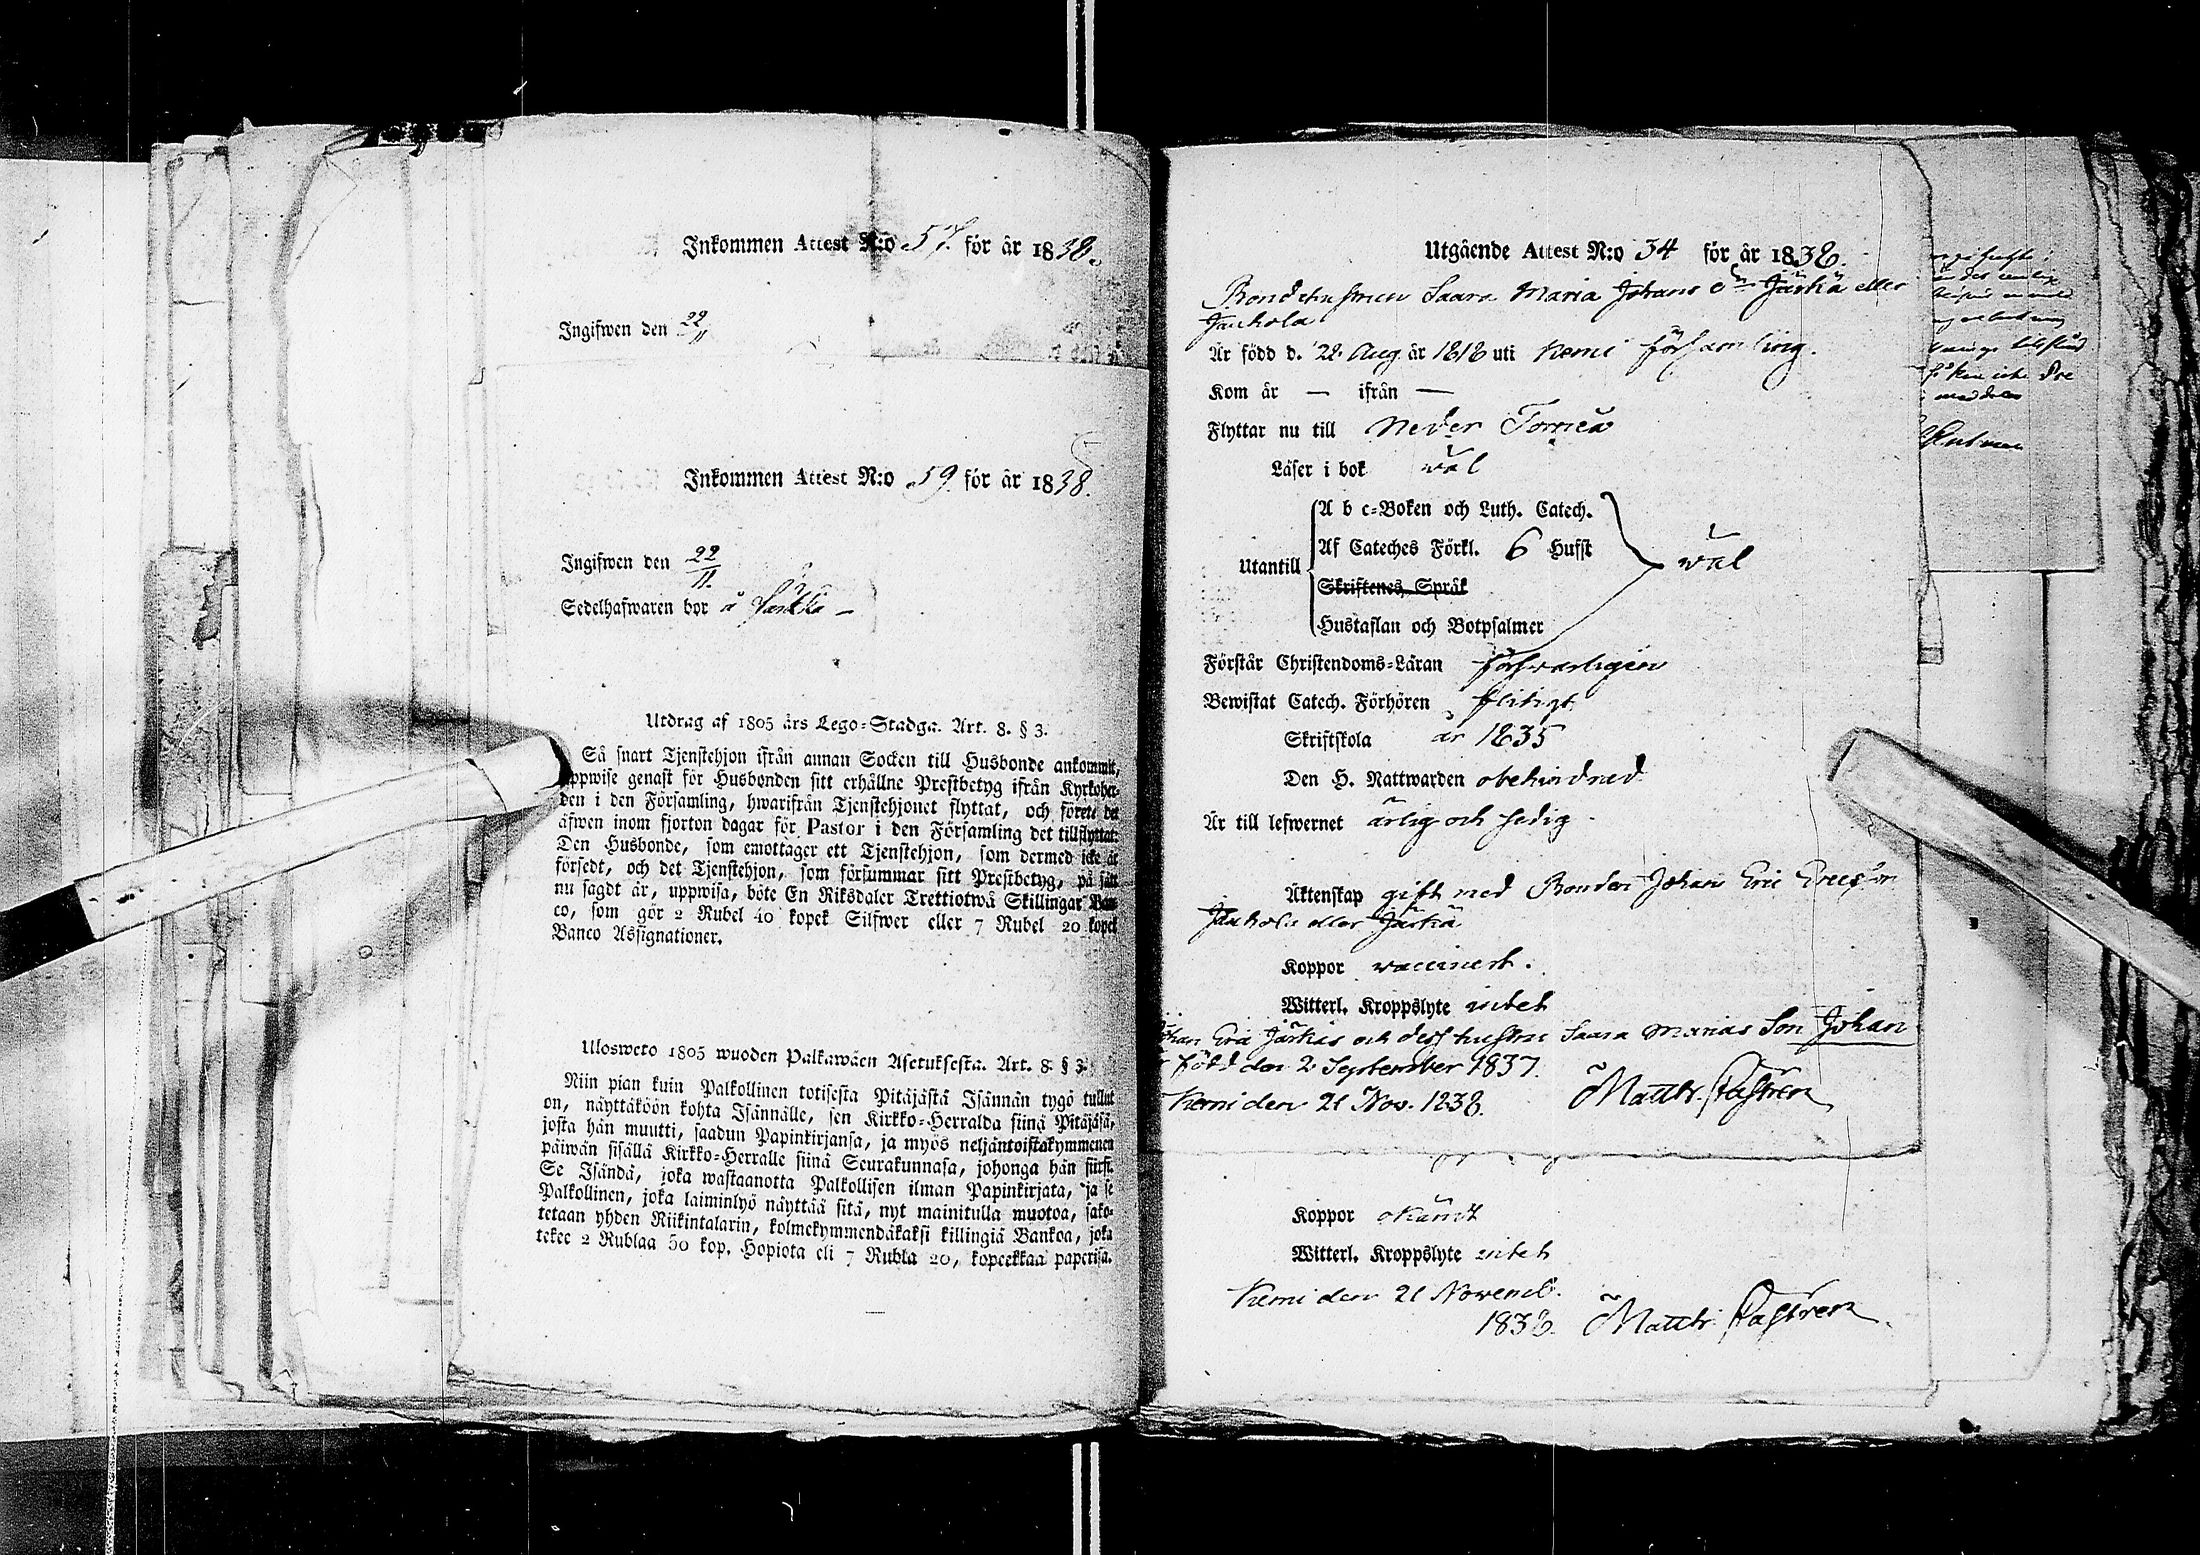 Inkommen Attest N:o 57. för år 1838.
Ingifwen den 22/11
Inkommen Attest N:o 59. för år 1838.
Ingifwen den 22/11.
Sedelhafwaren bor å
Utdrag af 1805 års Lego-Stadga. Art. 8. § 3.
Så snart Tjenstehjon ifrån annan Socken till Husbonde ankommit,
uppwise genast för Husbonden sitt erhållne Prestbetyg ifrån Kyrkoher-
den i den Församling, hwarifrån Tjenstehjonet flyttat, och förete det
äfwen inom fjorton dagar för Pastor i den Församling det tillflyttat.
Den Husbonde, som emottager ett Tjenstehjon, som dermed icke är
försedt, och det Tjenstehjon, som försummar sitt Prestbetyg, på sätt
nu sagdt är, uppwisa, böte En Riksdaler Trettiotwå Skillingar Ban-
co, som gör 2 Rubel 40 kopek Silfwer eller 7 Rubel 20 kopek
Banco Assignationer.
Ulosweto 1805 wuoden Palkawäen Asetuksesta. Art. 8. § 3.
Niin pian kuin Palkollinen toisesta Pitäjästä Isännän tygö tullut
on, näyttäköön kohta Isännälle, sen Kirkko-Herralda siinä Pitäjäsä,
josta hän muutti, saadun Papinkirjansa, ja myös neljäntoistakymmenen
päiwän sisällä Kirkko-Herralle siinä Seurakunnasa, johonga hän siirsi.
Se Isändä, joka wastaanotta Palkollisen ilman Papinkirjata, ja se
Palkollinen, joka laiminlyö näyttää sitä, nyt mainitulla muotoa, sako-
tetaan yhden Riikintalarin, kolmekymmendäkaksi killingiä Bankoa, joka
tekee 2 Rublaa 50 kop. Hopiota eli 7 Rubla 20, kopeekkaa paperisa.
Utgående Attest N:o 34 för år 1838.
Bondehustrun Saara Maria Johans dr Järkä eller
Jaukola
Är född d. 28 Aug år 1818 uti Kemi församling.
Kom år — ifrån —
Flyttar nu till Neder Torneå
Läser i bok väl
Utantill
A b c-Boken och Luth. Catech.
Af Cateches Förkl. 6 Hufst
väl
Skriftenes Språk
Hustaflan och Botpsalmer
Förstår Christendoms-Läran försvarligen
Bewistat Catech. Förhören flitigt
Skriftskola år 1835
Den H. Nattwarden obehindrad
Är till lefwernet ärlig och sedig
Äktenskap gift med Bonden Johan Eric Ericson
Jaukola eller Järkä
Koppor vaccinert.
Witterl. Kroppslyte intet
Johan Eric Järkäs och dess hustru Saara Marias Son Johan
född den 2 September 1837.
Kemi den 21 Nov. 1838. Matth. Castrén
Koppor okändt
Witterl. Kroppslyte intet
Kemi den 21 Novemb.
1838. Matth. Castrén